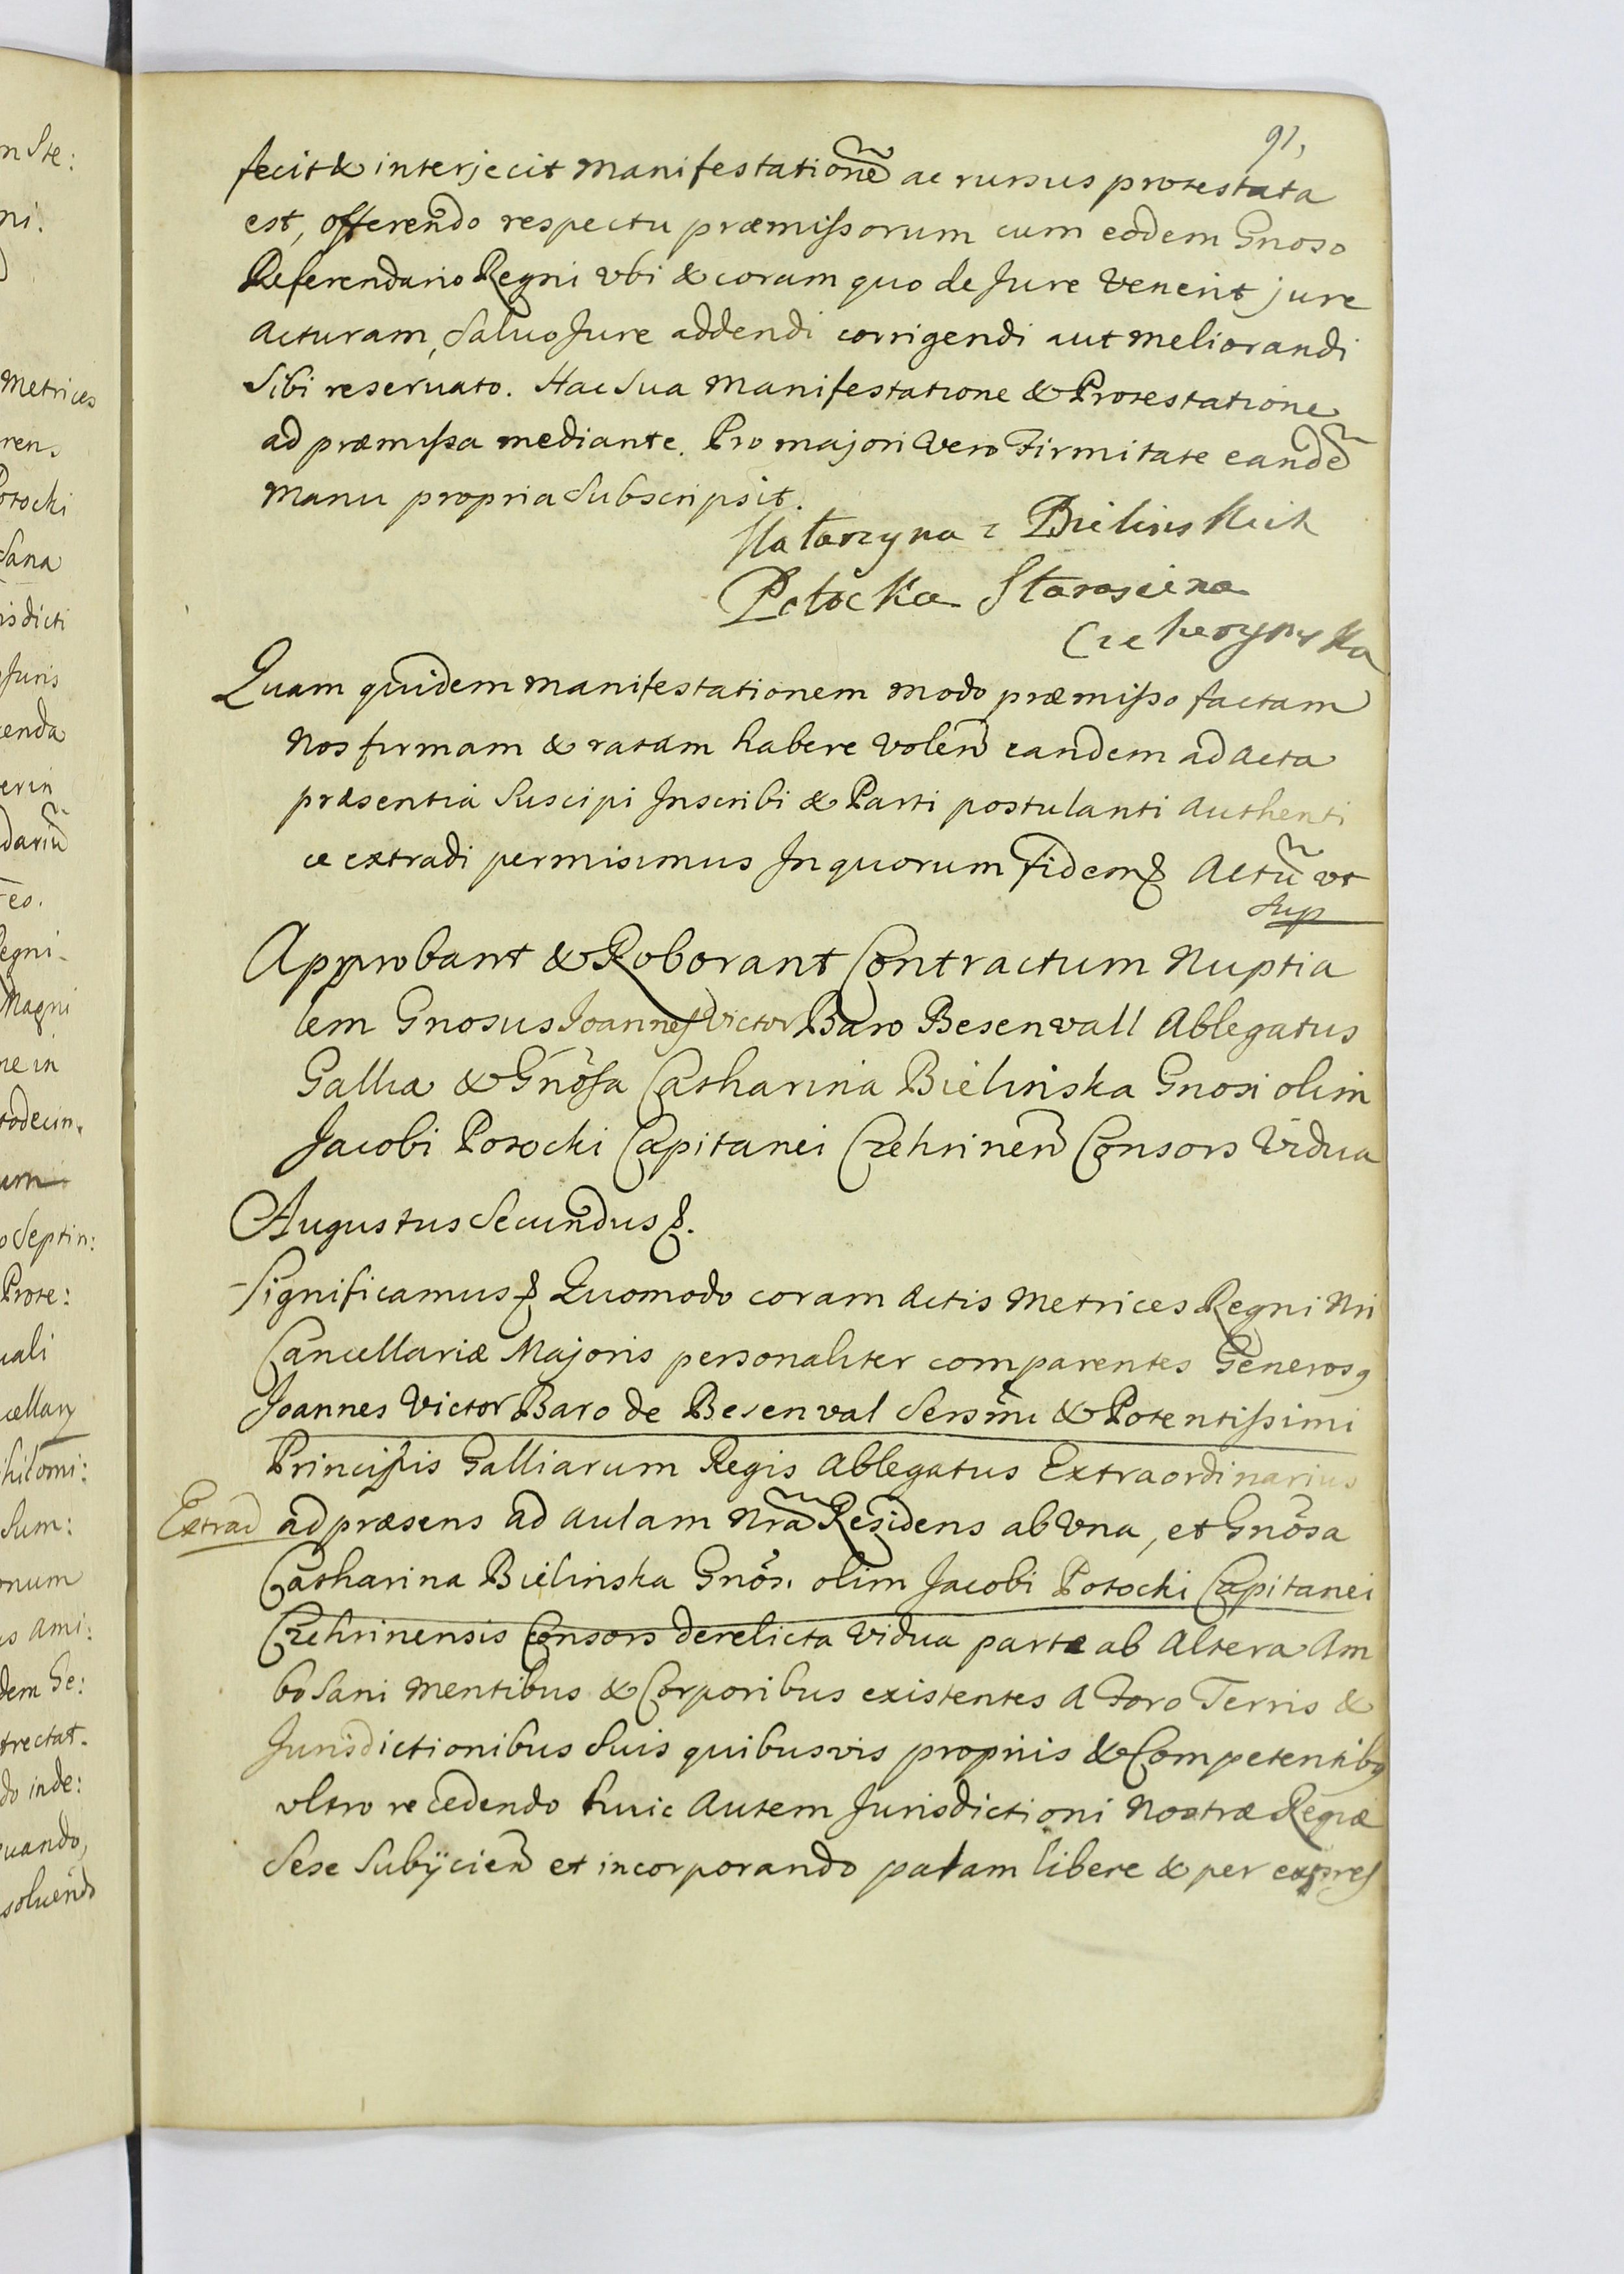 91,
fecit & interjecit Manifestatione͂ ac rursus protestata
est, offerendo respectu præmissorum cum eodem Gnoso
Referendario Regni vbi & coram quo de Jure Venerit jure
Acturam, Saluo Jure addendi corrigendi aut Meliorandi
Sibi reseruato. Hac Sua Manifestatione & Protestatione
ad præmissa mediante. Pro majori Vero Firmitate eande͂
Manu propria Subscripsit.
Katarzyna z Bielinskich
Potocka Staroscina
Czehrynska
Quam quidem Manifestationem Modo præmisso factam
Nos firmam & ratam habere Volen͂ eandem ad Acta
præsentia Suscipi Inscribi & Parti postulanti Authenti
ce extradi permisimus In quorum fidem Actu͂ vt
Sup
Approbant & Roborant Contractum Nuptia
lem Gnosus Joannes Victor Baro Besenvall Ablegatus
Galliæ & Gnosa Catharina Bielinska Gnosi olim
Jacobi Potocki Capitanei Czehrinen͂ Consors Vidua
Augustus Secundus
Significamus Quomodo coram Actis Metrices Regni Nri
Cancellariæ Majoris personaliter comparentes Generosꝯ
Joannes Victor Baro de Besenval Sersmi & Potentissimi
Principis Galliarum Regis Ablegatus Extraordinarius
Extrad ad præsens ad Aulam Nra͂ Residens ab Vna, et Gnosa
Catharina Bielinska Gnos. olim Jacobi Potocki Capitanei
Czehrinensis Consors derelicta Vidua parte ab Altera Am
bo Sani Mentibus & Corporibus existentes A Foro Terris &
Jurisdictionibus Suis quibusvis proprijs & Competentibꝯ
vltro recedendo huic Autem Jurisdictioni Nostræ Regiæ
Sese Subÿcien͂ et incorporando palam libere & per expres